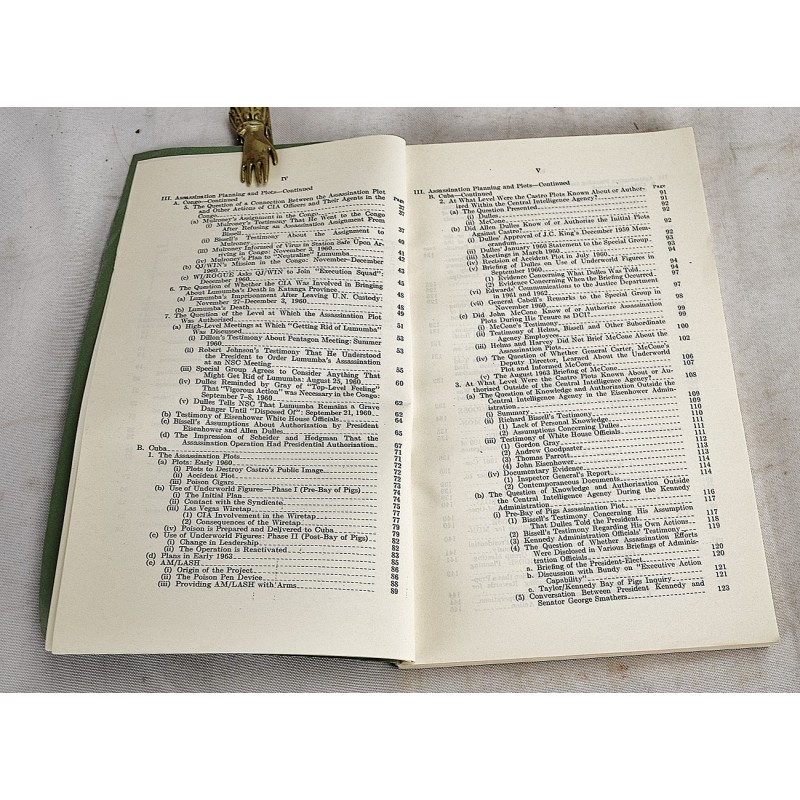 IV
III. Assassination Planning and Plots—Continued
A. Congo—Continued
Page
5. The Question of a Connection Between the Assassination Plot
and Other Actions of CIA Officers and Their Agents in the
Congo 37
(a) Mulroney's Assignment in the Congo 37
(i) Mulroney's Testimony That He Went to the Congo
After Refusing an Assassination Assignment From
Bissell 37
(ii) Bissell's Testimony About the Assignment to
Mulroney 40
(iii) Mulroney Informed of Virus in Station Safe Upon Ar-
riving in Congo: November 3, 1960 41
(iv) Mulroney's Plan to "Neutralize" Lumumba 42
(b) QJ/WIN's Mission in the Congo: November-December
1960 43
(c) WI/ROGUE Asks QJ/WIN to Join "Execution Squad":
December 1960 45
6. The Question of Whether the CIA Was Involved in Bringing
About Lumumba's Death in Katanga Province 48
(a) Lumumba's Imprisonment After Leaving U.N. Custody:
November 27-December 3, 1960 48
(b) Lumumba's Death 49
7. The Question of the Level at Which the Assassination Plot
Was Authorized 51
(a) High-Level Meetings at Which "Getting Rid of Lumumba"
Was Discussed 53
(i) Dillon's Testimony About Pentagon Meeting: Summer
1960 53
(ii) Robert Johnson's Testimony That He Understood
the President to Order Lumumba's Assassination
at an NSC Meeting 55
(iii) Special Group Agrees to Consider Anything That
Might Get Rid of Lumumba: August 25, 1960 60
(iv) Dulles Reminded by Gray of "Top-Level Feeling"
That "Vigorous Action" was Necessary in the Congo:
September 7-8, 1960 62
(v) Dulles Tells NSC That Lumumba Remains a Grave
Danger Until "Disposed Of": September 21, 1960 62
(b) Testimony of Eisenhower White House Officials 64
(c) Bissell's Assumptions About Authorization by President
Eisenhower and Allen Dulles 65
(d) The Impression of Scheider and Hedgman That the
Assassination Operation Had Presidential Authorization 67
B. Cuba 71
1. The Assassination Plots 71
(a) Plots: Early 1960 72
(i) Plots to Destroy Castro's Public Image 72
(ii) Accident Plot 72
(iii) Poison Cigars 73
(b) Use of Underworld Figures—Phase I (Pre-Bay of Pigs) 74
(i) The Initial Plan 74
(ii) Contact with the Syndicate 75
(iii) Las Vegas Wiretap 77
(1) CIA Involvement in the Wiretap 77
(2) Consequences of the Wiretap 79
(iv) Poison is Prepared and Delivered to Cuba 79
(c) Use of Underworld Figures: Phase II (Post-Bay of Pigs) 82
(i) Change in Leadership 82
(ii) The Operation is Reactivated 83
(d) Plans in Early 1963 85
(e) AM/LASH 86
(i) Origin of the Project 86
(ii) The Poison Pen Device 88
(iii) Providing AM/LASH with Arms 89
V
III. Assassination Planning and Plots—Continued
B. Cuba—Continued
Page
2. At What Level Were the Castro Plots Known About or Author-
ized Within the Central Intelligence Agency? 91
(a) The Question Presented 91
(i) Dulles 92
(ii) McCone 92
(b) Did Allen Dulles Know of or Authorize the Initial Plots
Against Castro? 92
(i) Dulles' Approval of J.C. King's December 1959 Mem-
orandum 92
(ii) Dulles' January 1960 Statement to the Special Group 93
(iii) Meetings in March 1960 93
(iv) Rescission of Accident Plot in July 1960 94
(v) Briefing of Dulles on Use of Underworld Figures in
September 1960 94
(1) Evidence Concerning What Dulles Was Told
(2) Evidence Concerning When the Briefing Occurred
(vi) Edwards' Communications to the Justice Department
in 1961 and 1962 97
(vii) General Cabell's Remarks to the Special Group in
November 1960 98
(c) Did John McCone Know of or Authorize Assassination
Plots During His Tenure as DCI? 99
(i) McCone's Testimony
(ii) Testimony of Helms, Bissell and Other Subordinate
Agency Employees 100
(iii) Helms and Harvey Did Not Brief McCone About the
Assassination Plots 102
(iv) The Question of Whether General Carter, McCone's
Deputy Director, Learned About the Underworld
Plot and Informed McCone 106
(v) The August 1963 Briefing of McCone 107
3. At What Level Were the Castro Plots Known About or Au-
thorized Outside of the Central Intelligence Agency? 108
(a) The Question of Knowledge and Authorization Outside the
Central Intelligence Agency in the Eisenhower Admin-
istration 109
(i) Summary 109
(ii) Richard Bissell's Testimony 110
(1) Lack of Personal Knowledge 110
(2) Assumptions Concerning Dulles 111
(iii) Testimony of White House Officials 111
(1) Gordon Gray 111
(2) Andrew Goodpaster 112
(3) Thomas Parrott 113
(4) John Eisenhower 113
(iv) Documentary Evidence 114
(1) Inspector General's Report 114
(2) Contemporaneous Documents 114
(b) The Question of Knowledge and Authorization Outside
the Central Intelligence Agency During the Kennedy
Administration 116
(i) Pre-Bay of Pigs Assassination Plot 117
(1) Bissell's Testimony Concerning His Assumption
That Dulles Told the President 117
(2) Bissell's Testimony Regarding His Own Actions 118
(3) Kennedy Administration Officials' Testimony 119
(4) The Question of Whether Assassination Efforts
Were Disclosed in Various Briefings of Adminis-
tration Officials 120
a. Briefing of the President-Elect 120
b. Discussion with Bundy on "Executive Action
Capability" 121
c. Taylor/Kennedy Bay of Pigs Inquiry 121
(5) Conversation Between President Kennedy and
Senator George Smathers 123